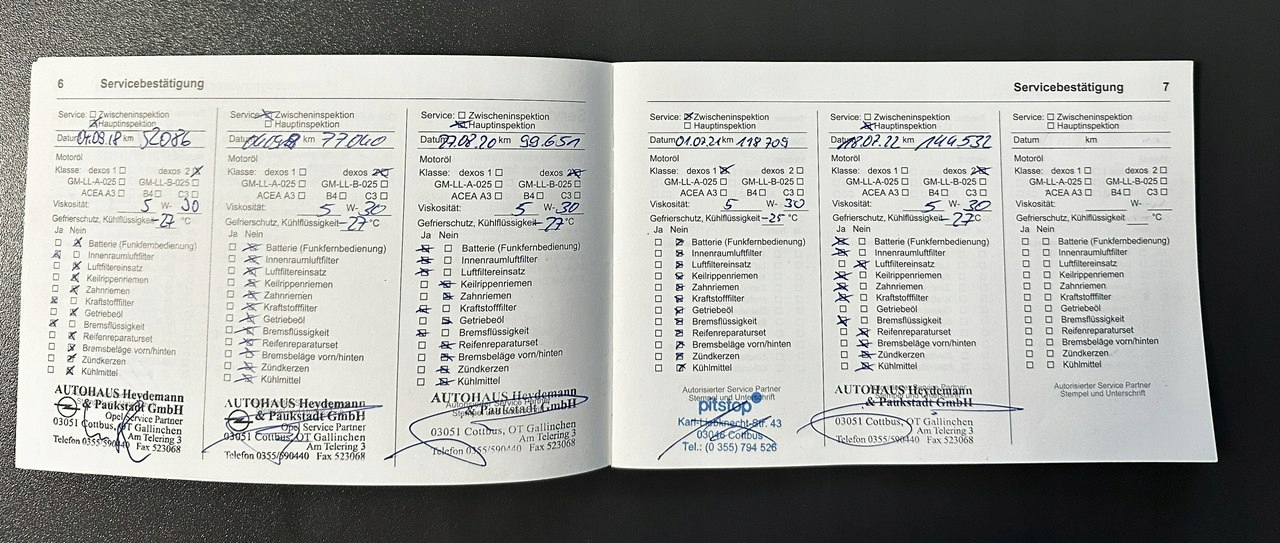 6 Servicebestätigung
Service: Zwischeninspektion
Hauptinspektion
Datum km 52086
Motoröl
Klasse: dexos 1 dexos 2
GM-LL-A-025 GM-LL-B-025
ACEA A3 B4 C3
Viskosität: 5 W- 30
Gefrierschutz, Kühlflüssigkeit -27 °C
Ja Nein
Batterie (Funkfernbedienung)
Innenraumluftfilter
Luftfiltereinsatz
Keilrippenriemen
Zahnriemen
Kraftstofffilter
Getriebeöl
Bremsflüssigkeit
Reifenreparaturset
Bremsbeläge vorn/hinten
Zündkerzen
Kühlmittel
AUTOHAUS Heydemann
& Paukstadt GmbH
Opel Service Partner
03051 Cottbus, OT Gallinchen
Am Telering 3
Telefon 0355/590440 Fax 523068
Service: Zwischeninspektion
Hauptinspektion
Datum km 77040
Motoröl
Klasse: dexos 1 dexos 2
GM-LL-A-025 GM-LL-B-025
ACEA A3 B4 C3
Viskosität: 5 W- 30
Gefrierschutz, Kühlflüssigkeit -27 °C
Ja Nein
Batterie (Funkfernbedienung)
Innenraumluftfilter
Luftfiltereinsatz
Keilrippenriemen
Zahnriemen
Kraftstofffilter
Getriebeöl
Bremsflüssigkeit
Reifenreparaturset
Bremsbeläge vorn/hinten
Zündkerzen
Kühlmittel
AUTOHAUS Heydemann
& Paukstadt GmbH
Opel Service Partner
03051 Cottbus, OT Gallinchen
Am Telering 3
Telefon 0355/590440 Fax 523068
Service: Zwischeninspektion
Hauptinspektion
Datum km 99.651
Motoröl
Klasse: dexos 1 dexos 2
GM-LL-A-025 GM-LL-B-025
ACEA A3 B4 C3
Viskosität: 5 W- 30
Gefrierschutz, Kühlflüssigkeit -27 °C
Ja Nein
Batterie (Funkfernbedienung)
Innenraumluftfilter
Luftfiltereinsatz
Keilrippenriemen
Zahnriemen
Kraftstofffilter
Getriebeöl
Bremsflüssigkeit
Reifenreparaturset
Bremsbeläge vorn/hinten
Zündkerzen
Kühlmittel
AUTOHAUS Heydemann
& Paukstadt GmbH
03051 Cottbus, OT Gallinchen
Am Telering 3
Telefon 0355/590440 Fax 523068
Servicebestätigung 7
Service: Zwischeninspektion
Hauptinspektion
Datum 01.07.21 km 118 709
Motoröl
Klasse: dexos 1 dexos 2
GM-LL-A-025 GM-LL-B-025
ACEA A3 B4 C3
Viskosität: 5 W- 30
Gefrierschutz, Kühlflüssigkeit -25 °C
Ja Nein
Batterie (Funkfernbedienung)
Innenraumluftfilter
Luftfiltereinsatz
Keilrippenriemen
Zahnriemen
Kraftstofffilter
Getriebeöl
Bremsflüssigkeit
Reifenreparaturset
Bremsbeläge vorn/hinten
Zündkerzen
Kühlmittel
Autorisierter Service Partner
Stempel und Unterschrift
pitstop
Karl-Liebknecht-Str. 43
03046 Cottbus
Tel.: (0 355) 794 526
Service: Zwischeninspektion
Hauptinspektion
Datum km 144.532
Motoröl
Klasse: dexos 1 dexos 2
GM-LL-A-025 GM-LL-B-025
ACEA A3 B4 C3
Viskosität: 5 W- 30
Gefrierschutz, Kühlflüssigkeit -27 °C
Ja Nein
Batterie (Funkfernbedienung)
Innenraumluftfilter
Luftfiltereinsatz
Keilrippenriemen
Zahnriemen
Kraftstofffilter
Getriebeöl
Bremsflüssigkeit
Reifenreparaturset
Bremsbeläge vorn/hinten
Zündkerzen
Kühlmittel
AUTOHAUS Heydemann
& Paukstadt GmbH
03051 Cottbus, OT Gallinchen
Am Telering 3
Telefon 0355/590440 Fax 523068
Service: Zwischeninspektion
Hauptinspektion
Datum km
Motoröl
Klasse: dexos 1 dexos 2
GM-LL-A-025 GM-LL-B-025
ACEA A3 B4 C3
Viskosität: W-
Gefrierschutz, Kühlflüssigkeit °C
Ja Nein
Batterie (Funkfernbedienung)
Innenraumluftfilter
Luftfiltereinsatz
Keilrippenriemen
Zahnriemen
Kraftstofffilter
Getriebeöl
Bremsflüssigkeit
Reifenreparaturset
Bremsbeläge vorn/hinten
Zündkerzen
Kühlmittel
Autorisierter Service Partner
Stempel und Unterschrift